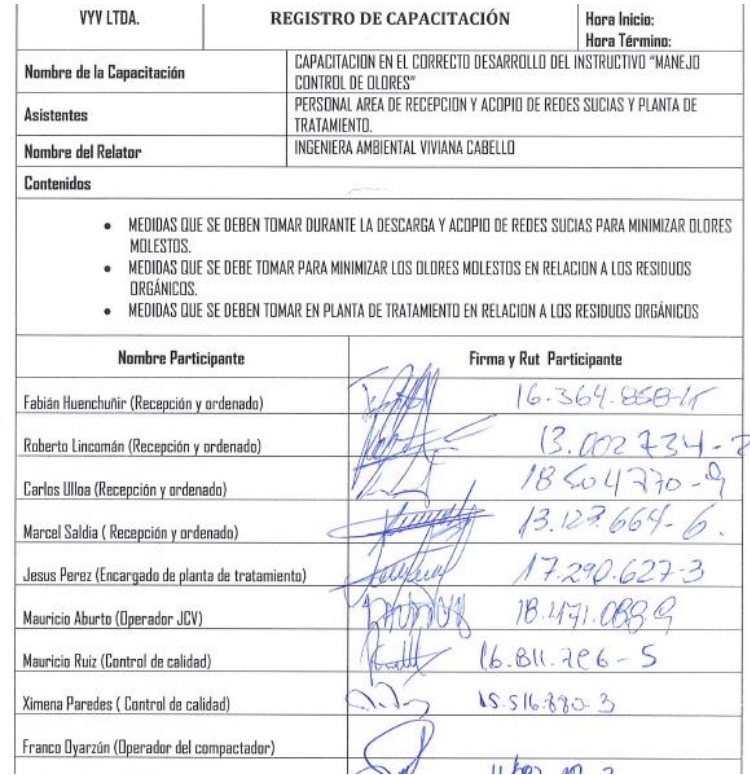 VYV LTDA.
REGISTRO DE CAPACITACIÓN
Hora Inicio:
Hora Término:
Nombre de la Capacitación
CAPACITACION EN EL CORRECTO DESARROLLO DEL INSTRUCTIVO “MANEJO
CONTROL DE OLORES”
Asistentes
PERSONAL AREA DE RECEPCION Y ACOPIO DE REDES SUCIAS Y PLANTA DE
TRATAMIENTO.
Nombre del Relator
INGENIERA AMBIENTAL VIVIANA CABELLO
Contenidos
• MEDIDAS QUE SE DEBEN TOMAR DURANTE LA DESCARGA Y ACOPIO DE REDES SUCIAS PARA MINIMIZAR OLORES
MOLESTOS.
• MEDIDAS QUE SE DEBE TOMAR PARA MINIMIZAR LOS OLORES MOLESTOS EN RELACION A LOS RESIDUOS
ORGÁNICOS.
• MEDIDAS QUE SE DEBEN TOMAR EN PLANTA DE TRATAMIENTO EN RELACION A LOS RESIDUOS ORGÁNICOS
Nombre Participante
Firma y Rut Participante
Fabián Huenchuñir (Recepción y ordenado)
16.364.858-K
Roberto Lincomán (Recepción y ordenado)
13.002734-2
Carlos Ulloa (Recepción y ordenado)
18504770-9
Marcel Saldia ( Recepción y ordenado)
13.127.664-6.
Jesus Perez (Encargado de planta de tratamiento)
17.290.627-3
Mauricio Aburto (Operador JCV)
18.471.088.9
Mauricio Ruiz (Control de calidad)
16.811.726-5
Ximena Paredes ( Control de calidad)
15.516.880-3
Franco Oyarzún (Operador del compactador)